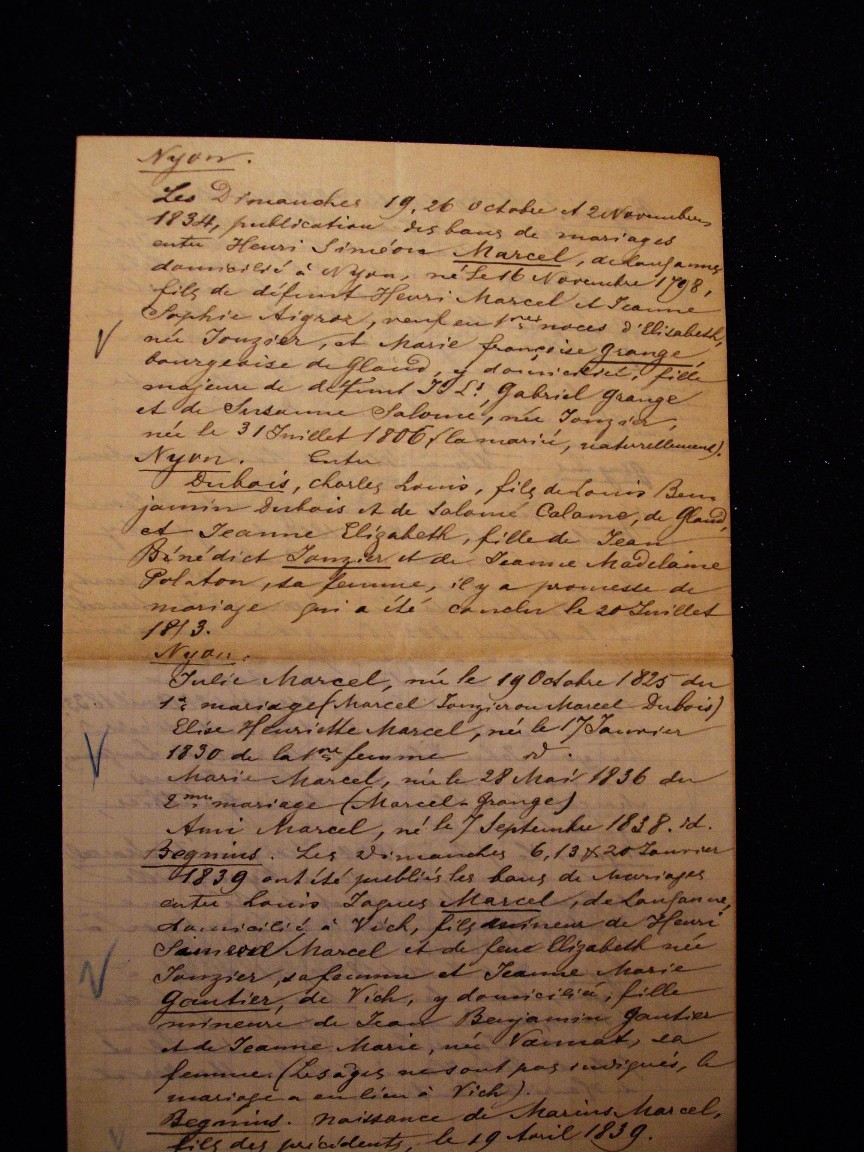 Nyon.
Les Dimanches 19, 26 Octobre et 2 Novembres
1834, publication des bans de mariages
entre Henri Siméon Marcel, de Lausanne,
domicilié à Nyon, né le 16 Novembre 1798,
fils de défunt Henri Marcel et Jeanne
Sophie Aigroz, veuf en 1res noces d'Elisabeth,
née Jonzier, et Marie françoise Grange,
bourgeoise de Gland, y domiciliée, fille
majeure de défunt Js Ls, Gabriel Grange
et de Susanne Salomé, née Jonzier,
née le 31 Juillet 1806 (la mariée, naturellement).
Nyon. Entre
Dubois, charles Louis, fils de Louis Ben
jamin Dubois et de Salomé Calame, de Gland,
et Jeanne Elizabeth, fille de Jean
Bénédict Jonzier et de Jeanne Madelaine
Polaton, sa femme, il y a promesse de
mariage qui a été conclu le 20 Juillet
1813.
Nyon.
Julie Marcel, née le 19 Octobre 1825 du
1er mariage (Marcel Jonzier ou Marcel Dubois)
Elise Henriette Marcel, née le 17 Janvier
1830 de la 1re femme id.
Marie Marcel, née le 28 Mai 1836 du
2me mariage (Marcel-Grange)
Ami Marcel, né le 7 Septembre 1838. id.
Begnins. Les Dimanches 6, 13 & 20 Janvier
1839 ont été publiés les bans de Mariages
entre Louis Jaques Marcel, de Lausanne,
domicilié à Vich, fils mineur de Henri
Marcel et de feue Elizabeth née
Jonzier, sa femme et Jeanne Marie
Gautier, de Vich, y domiciliée, fille
mineure de Jean Benjamin Gautier
et de Jeanne Marie, née sa
femme. (Les ages ne sont pas indiqués, le
mariage a eu lieu à Vich).
Begnins. Naissance de Marius Marcel,
fils des précédents, le 19 Avril 1839.